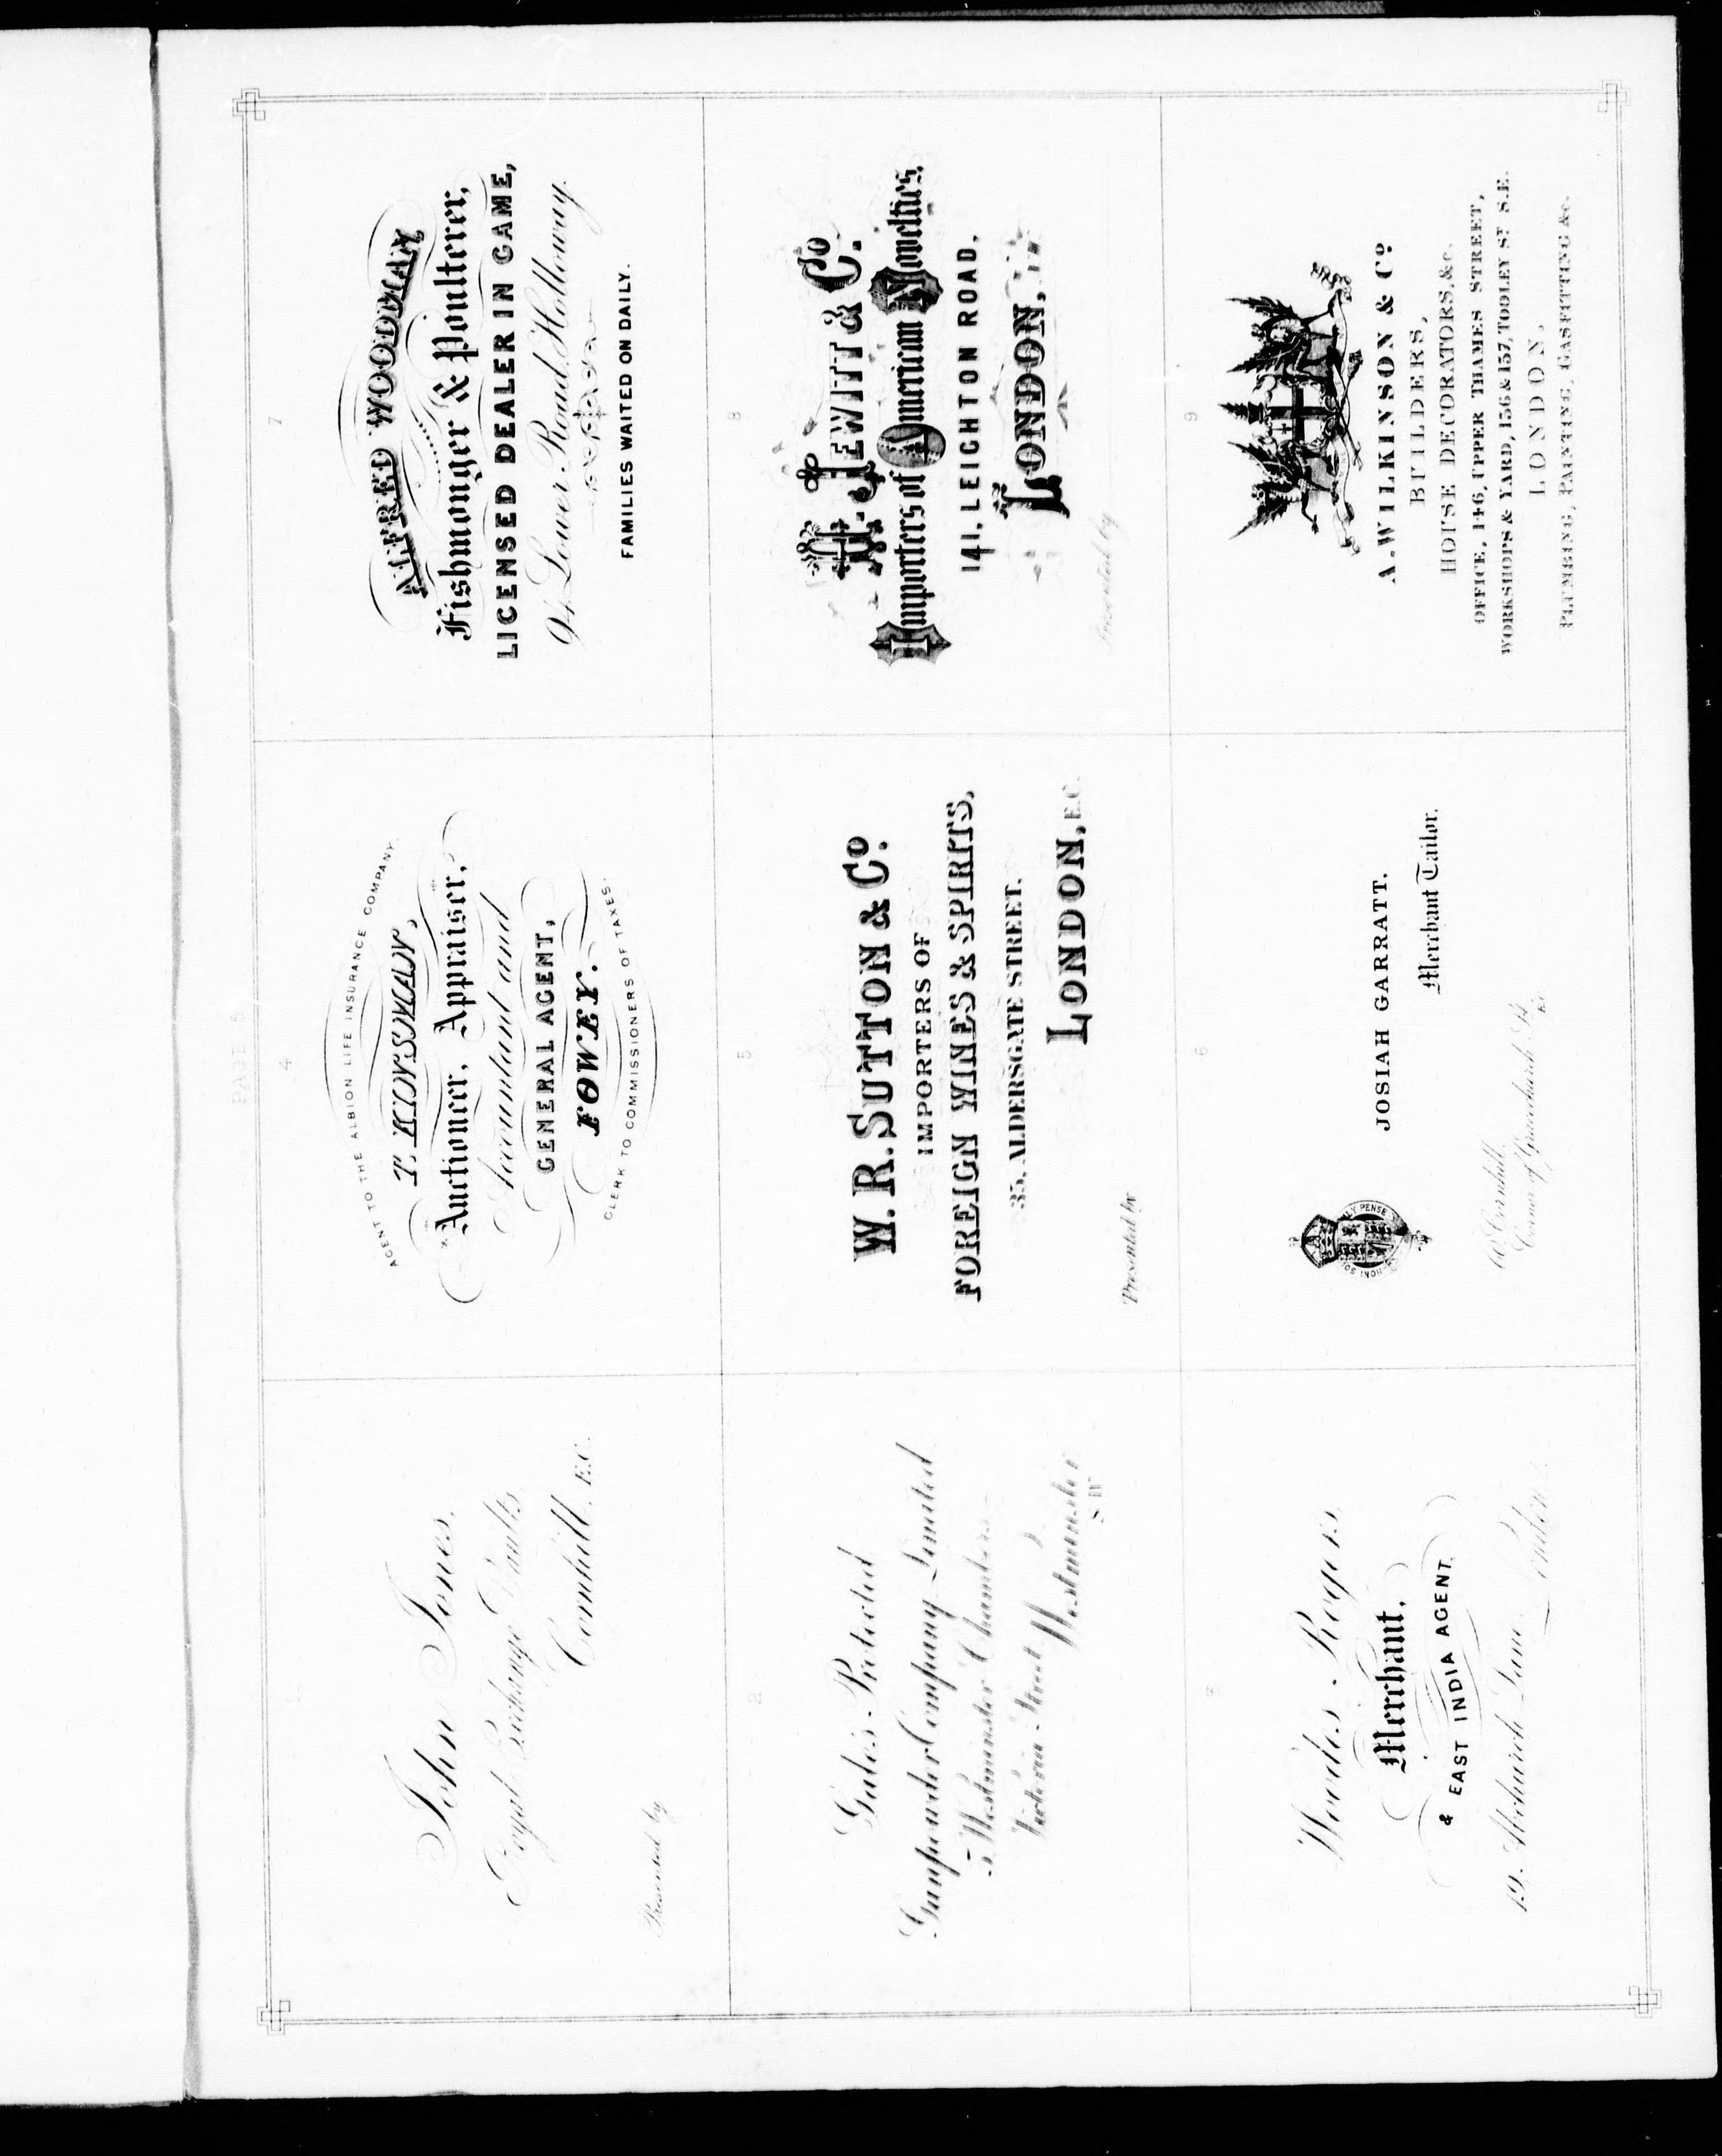 PAGE 5
1
John Jones,
Royal Exchange Vaults,
Cornhill, E.C.
Presented by
2
Gale's Protected
Gunpowder Company Limited
5 Westminster Chambers
Victoria Street Westminster
S W
3
Woodes Rogers
Merchant,
& EAST INDIA AGENT,
19, Abchurch Lane, London
4
AGENT TO THE ALBION LIFE INSURANCE COMPANY,
T. KINSMAN,
Auctioneer, Appraiser,
Accountant and
GENERAL AGENT,
FOWEY.
CLERK TO COMMISSIONERS OF TAXES.
5
W. R. SUTTON & Co.
IMPORTERS OF
FOREIGN WINES & SPIRITS,
35, ALDERSGATE STREET.
LONDON, E.C.
Presented by
6
JOSIAH GARRATT.
Merchant Tailor.
Cornhill,
Corner of Gracechurch St.
E.C.
7
ALFRED WOODMAN
Fishmonger & Poulterer,
LICENSED DEALER IN GAME,
94, Lower Road, Holloway.
FAMILIES WAITED ON DAILY.
8
H. JEWITT & Co.
Importers of American Novelties,
141, LEIGHTON ROAD,
LONDON,
Presented by
9
A. WILKINSON & Co
BUILDERS,
HOUSE DECORATORS, &c.
OFFICE, 146, UPPER THAMES STREET,
WORKSHOPS & YARD, 156 & 157, TOOLEY ST S.E.
LONDON.
PLUMBING, PAINTING, GASFITTING &c.